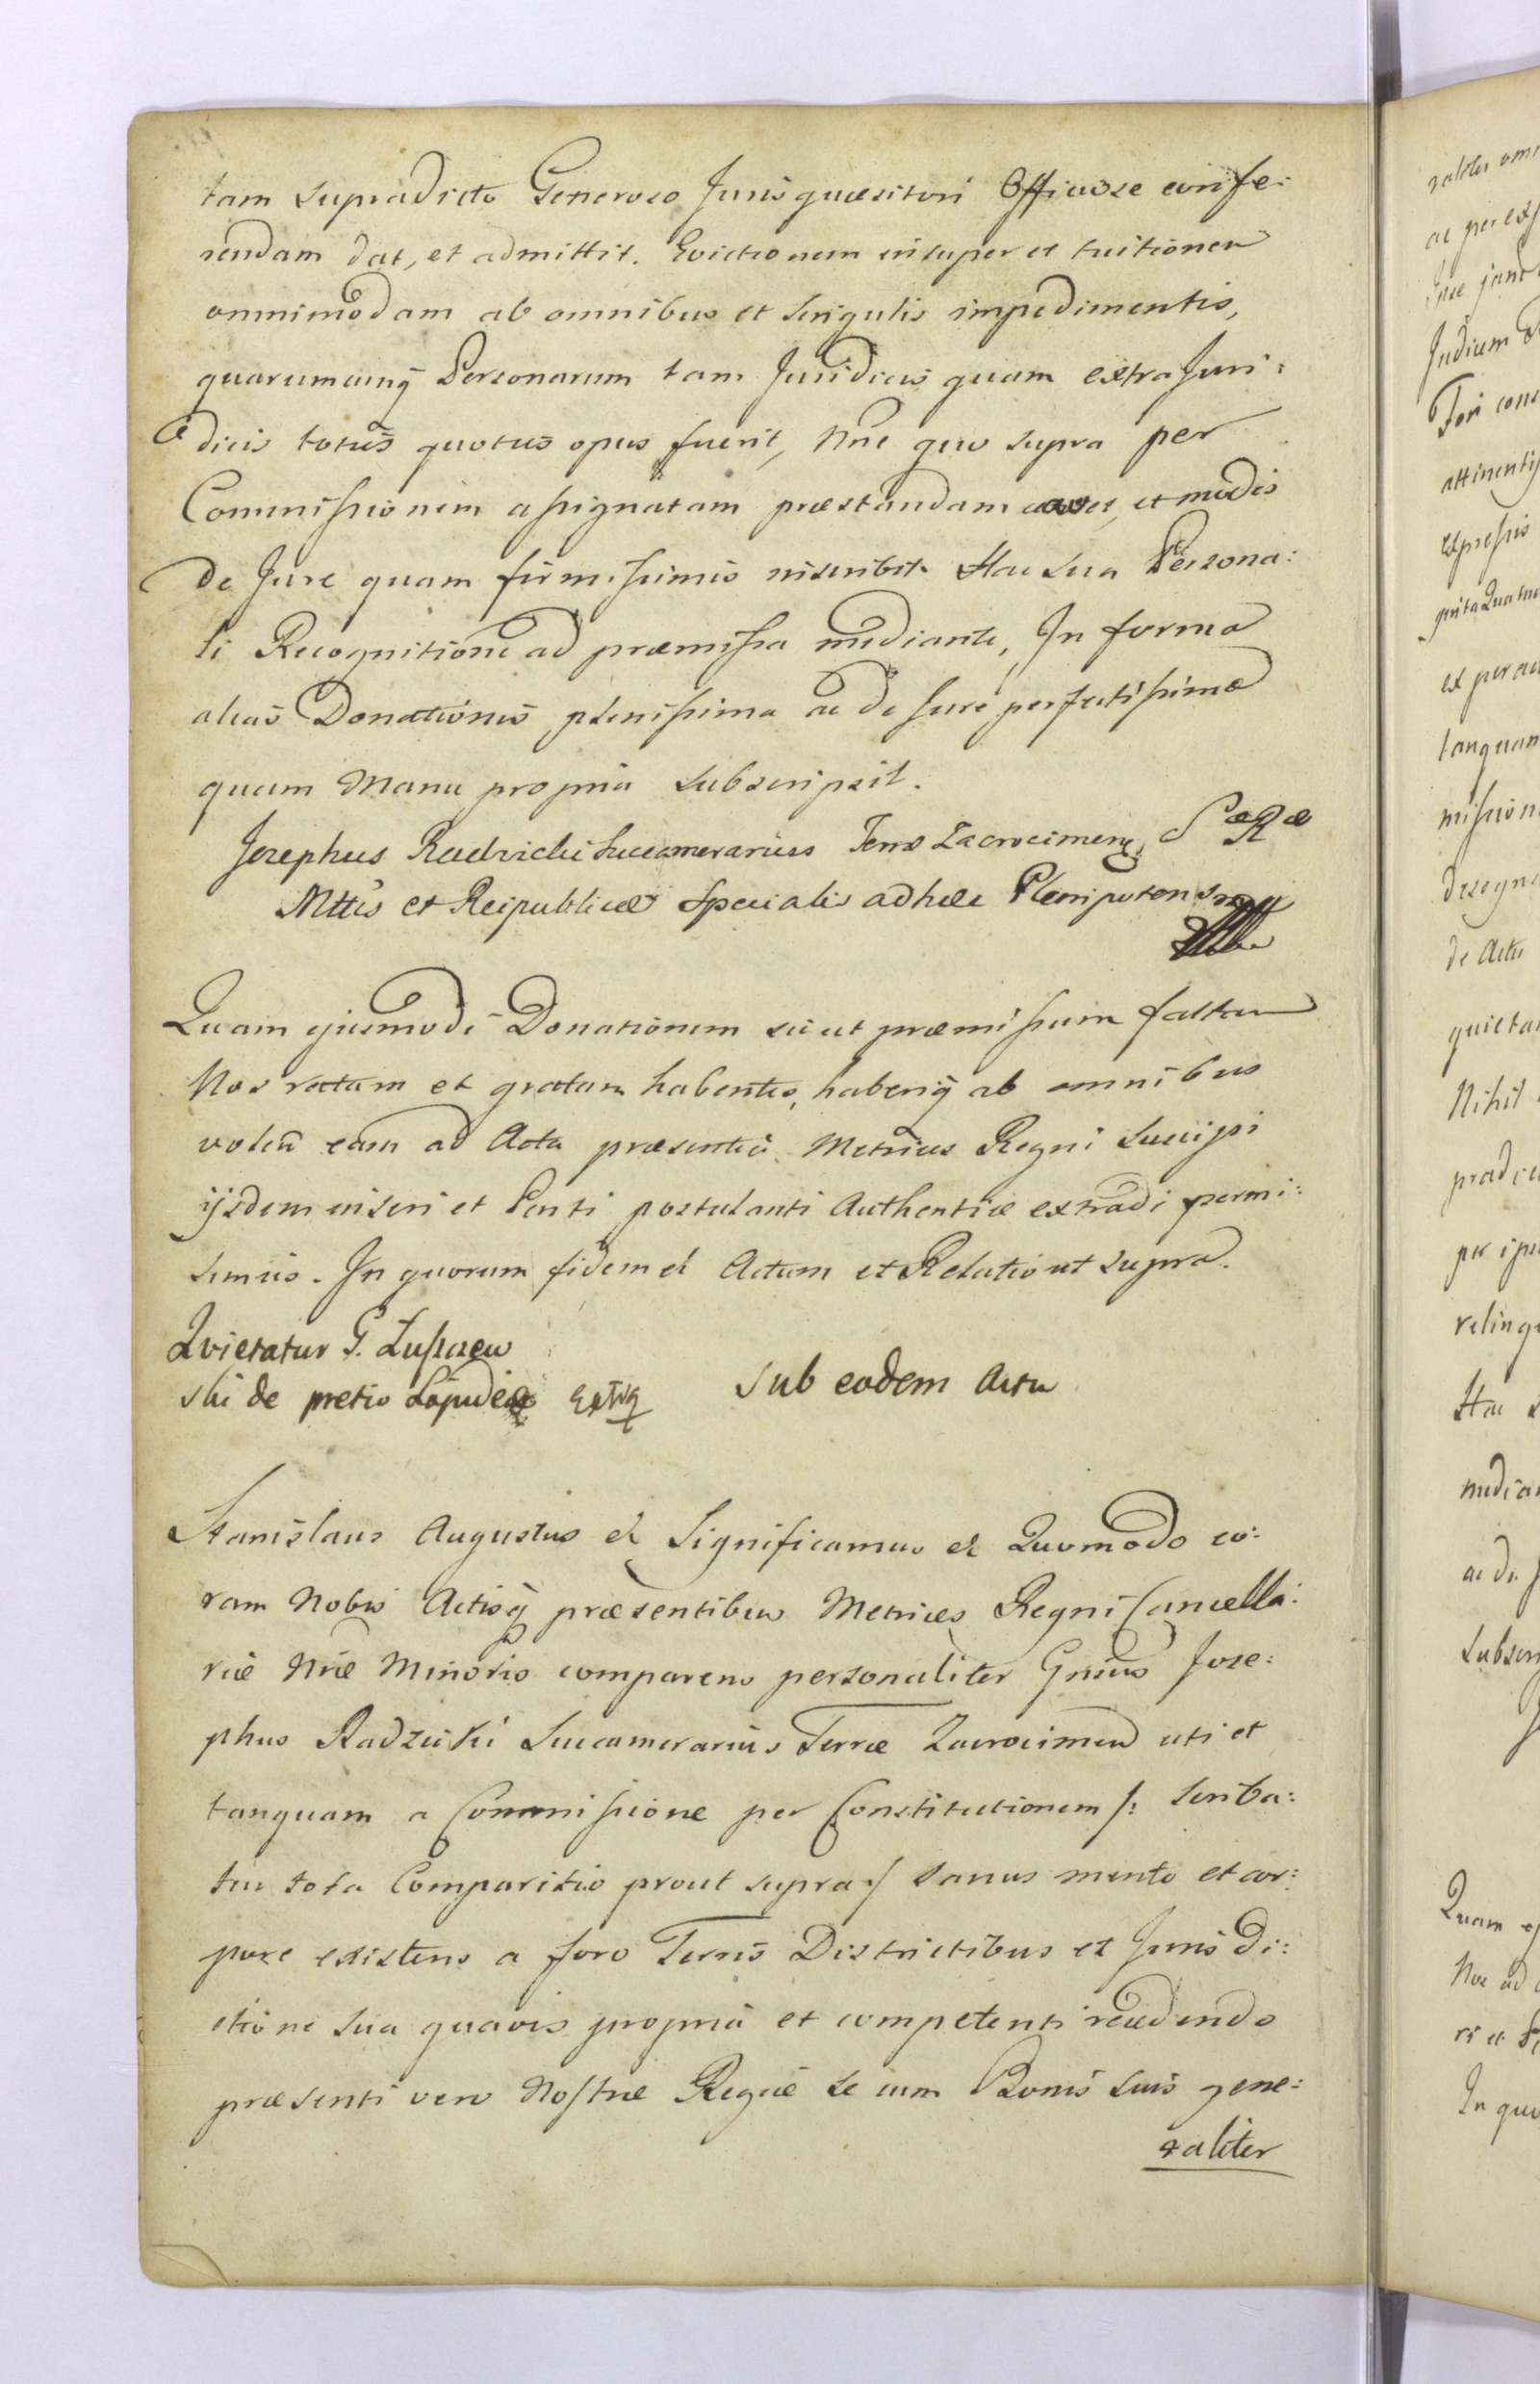 tam supradicto Generoso Jurisquæsitori Officiose confe:
rendam dat, et admittit. Evictionem insuper et tuitionem
omnimodam ab omnibus et singulis impedimentis,
quarumcunq Personarum tam Juridicis quam extra Juri:
dicis toties quoties opus fuerit, nne quo supra per
Commissionem assignatam præstandam cavet, et modis
de Jure quam firmissimis inscribit. Hac sua Persona:
li Recognitione ad præmissa mediante, In forma
alias Donationis plenissima ac de Jure perfectissima
quam Manu propria subscripsit.
Josephus Radzicki Succamerarius Terræ Zacrocimens, S æ R æ
Mttis et Reipublicæ Specialis ad hæc Plenipotens mp
Quam ejusmodi Donationem sicut præmissum factam
Nos ratam et gratam habentes, haberiq ab omnibus
volen eam ad Acta præsentia Metrices Regni suscipi
ijsdem inseri et Penti postulanti Authentice extradi permi:
simus. In quorum fidem et Actum et Relatio ut supra.
Quietatur G. Lusszew
ski de pretio Lapideæ
sub eodem Actu
Stanislaus Augustus et Significamus et Quomodo co:
ram Nobis Actisq præsentibus Metrices Regni Cancella:
riæ Nræ Minoris comparens personaliter Gnsus Jose:
phus Radzicki Succamerarius Terræ Zacrocimen uti et
tanquam a Commissione per Constitutionem /: scriba:
tur tota Comparitio prout supra :/ sanus mente et cor:
pore existens a foro Terris Districtibus et Juris di:
ctione sua quavis propria et competenti recedendo
præsenti vero Nostræ Regiæ se cum Bonis suis gene:
raliter